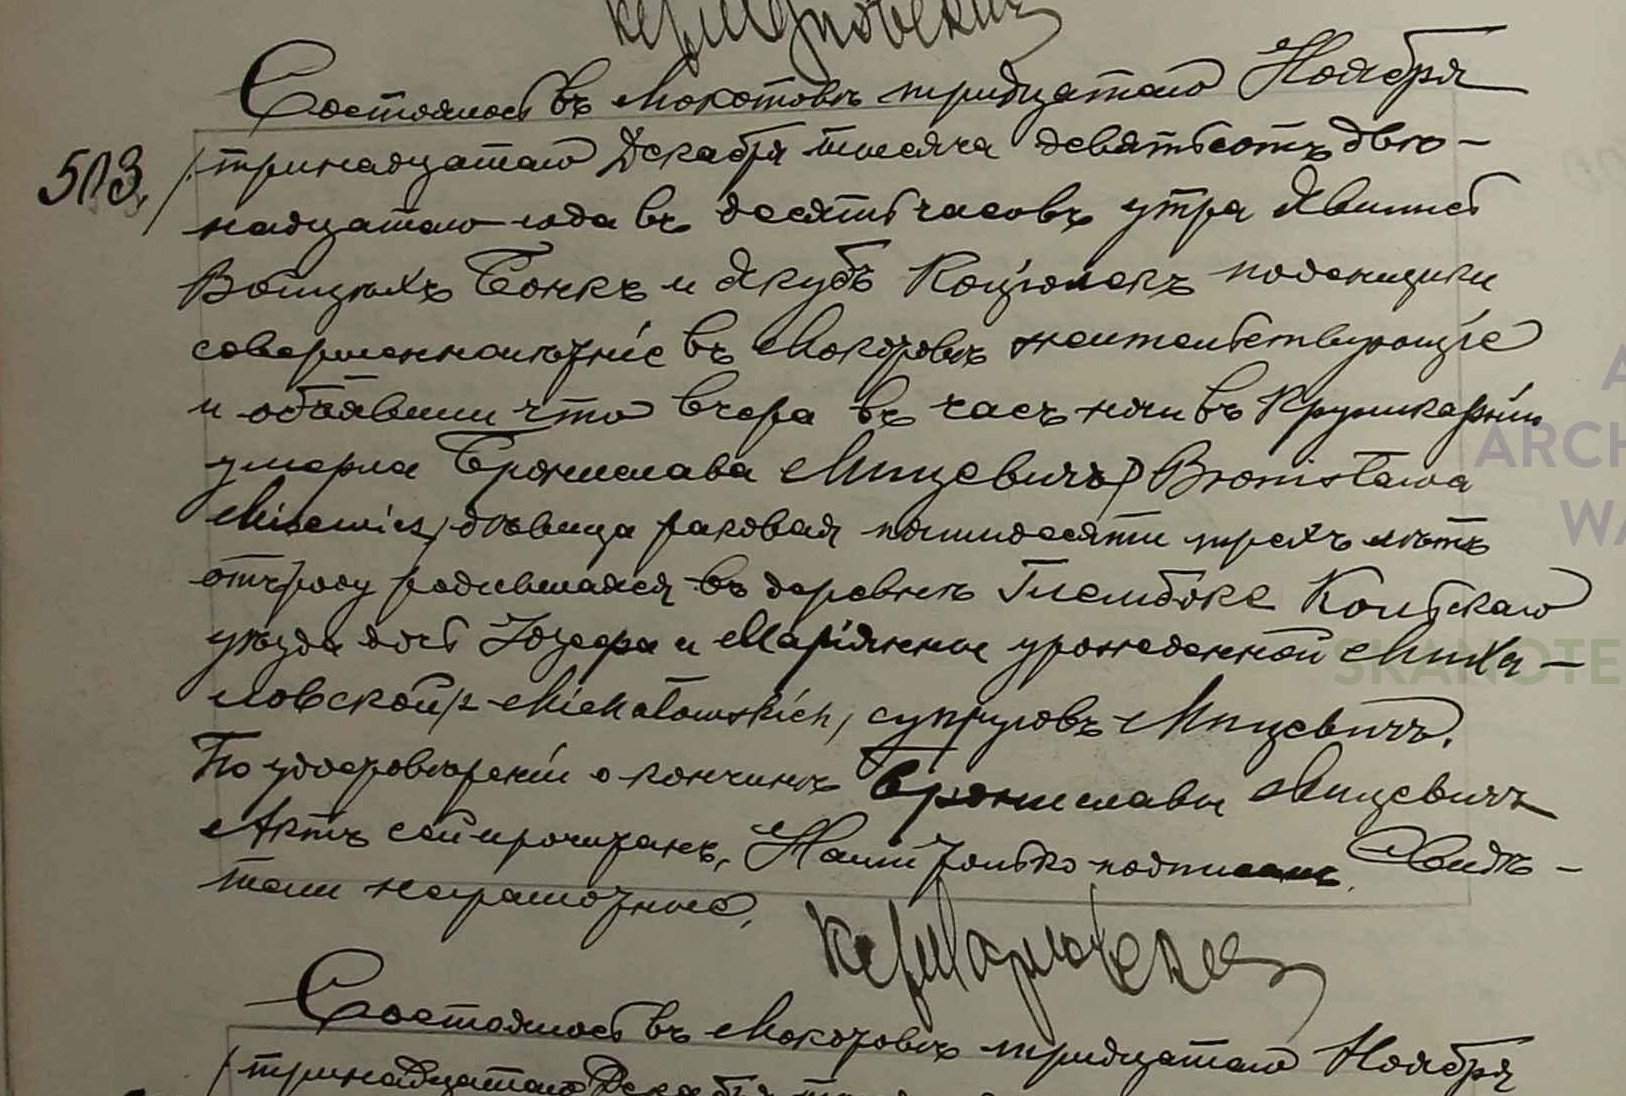 Состоялось въ Мокотовѣ тридцатаго Ноября
503. /тринадцатаго Декабря тысяча девятьсотъ двѣ-
надцатаго года въ десять часовъ утра Явились
Войцѣхъ Бонкъ и Якубъ поденщики
совершеннолѣтніе въ Мокотовѣ жительствующіе
и объявили что вчера въ часъ ночи въ
умерла Бронислава Мицевичъ / Bronisława
Micewicz / дѣвица пятидесяти трехъ лѣтъ
отъ роду родившаяся въ деревнѣ Глембоке Кольскаго
уѣзда дочь Іозефа и Маріянны урожденной Миха-
ловской /z Michałowskich / супруговъ Мицевичъ.
По удостовѣреніи о кончинѣ Брониславы Мицевичъ
Актъ сей прочитанъ, Нами только подписанъ. Свидѣ-
тели неграмотные.
Состоялось въ Мокотовѣ тридцатаго Ноября
/тринадцатаго Декабря
ARCH
WA
SKANOTE